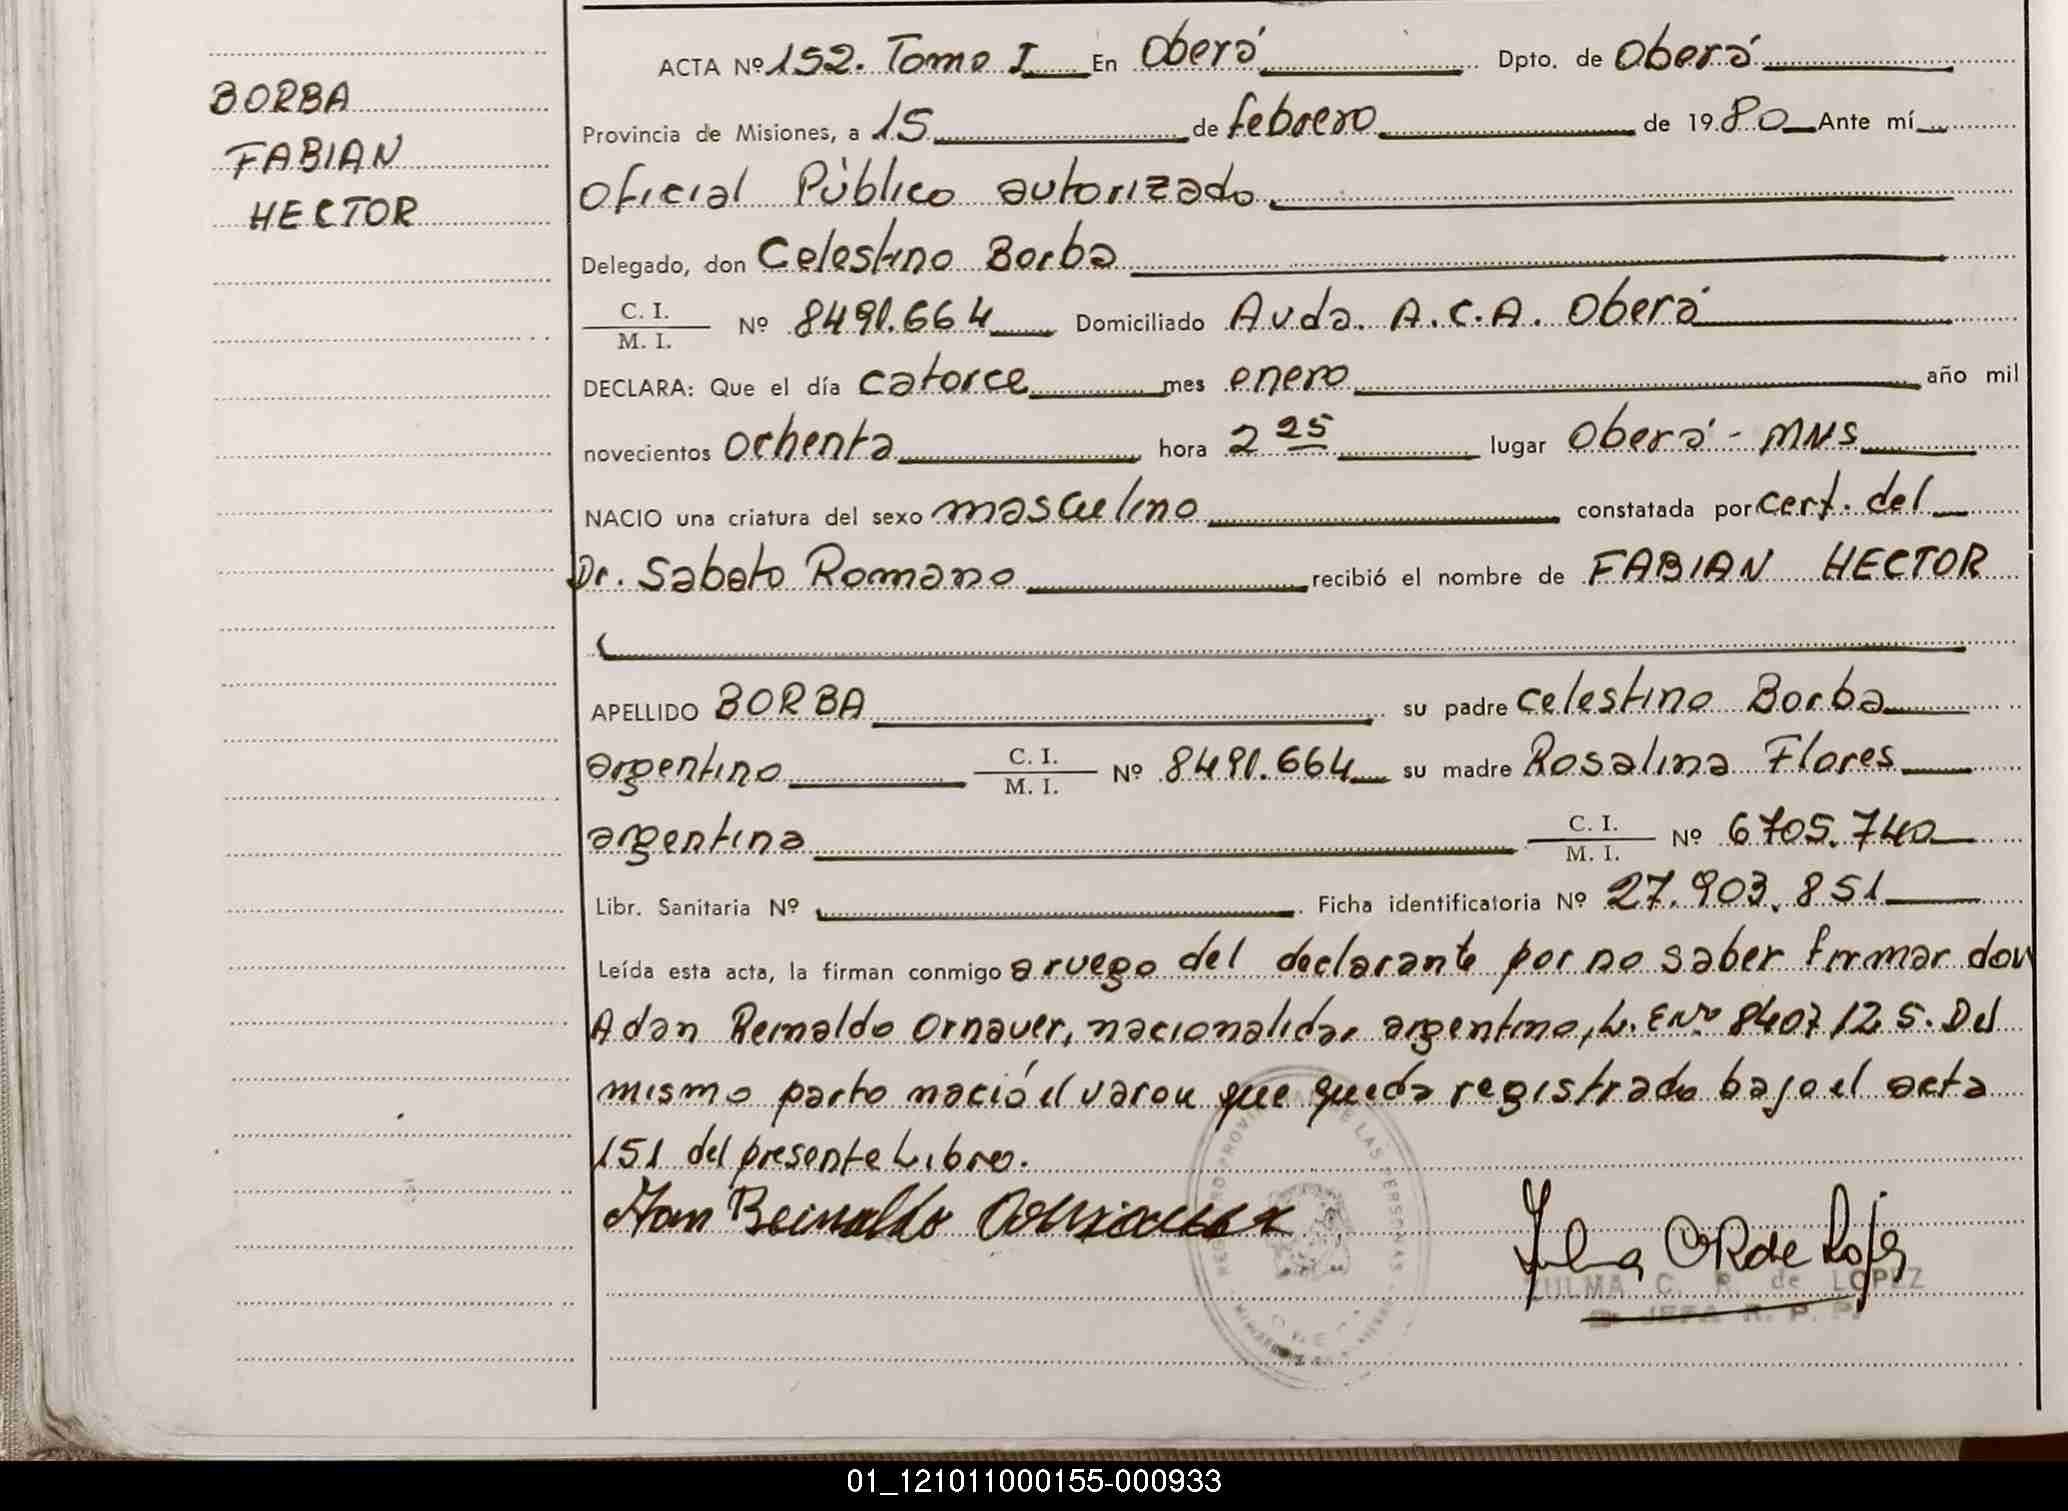 BORBA
FABIAN
HECTOR
ACTA Nº 152. Tomo I En Oberá Dpto. de Oberá
Provincia de Misiones, a 15 de febrero de 1980 Ante mí
Oficial Público autorizado
Delegado, don Celestino Borba
C. I. / M. I. Nº 8491.664 Domiciliado Avda. A.C.A. Oberá
DECLARA: Que el día catorce mes enero año mil
novecientos ochenta hora 2 25 lugar Oberá - MNS
NACIO una criatura del sexo masculino constatada por cert. del
Dr. Sabato Romano recibió el nombre de FABIAN HECTOR
APELLIDO BORBA su padre Celestino Borba
argentino C. I. / M. I. Nº 8491.664 su madre Rosalina Flores
argentina C. I. / M. I. Nº 6705.740
Libr. Sanitaria Nº Ficha identificatoria Nº 27.903.851
Leída esta acta, la firman conmigo a ruego del declarante por no saber firmar don
Adan Reinaldo Ornauer, nacionalidad argentino, L. E Nº 8407125. Del
mismo parto nació el varon que queda registrado bajo el acta
151 del presente Libro.
Adan Reinaldo
ZULMA C. R. de LOPEZ
JEFA R. P. P.
01_121011000155-000933